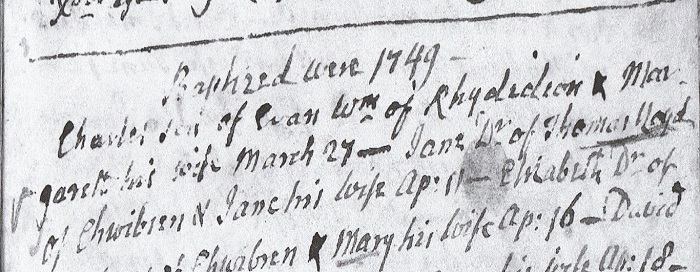 Baptized were 1749 —
Charles son of Evan Wm of Rhydideion & Mar-
garet his wife March 27 — Jane Dr of Thomas Lloyd
of Chwibren & Jane his wife Ap: 11 — Elizabeth Dr of
of Chwibren & Mary his wife Ap: 16 — David
his wife Ap: 18 —